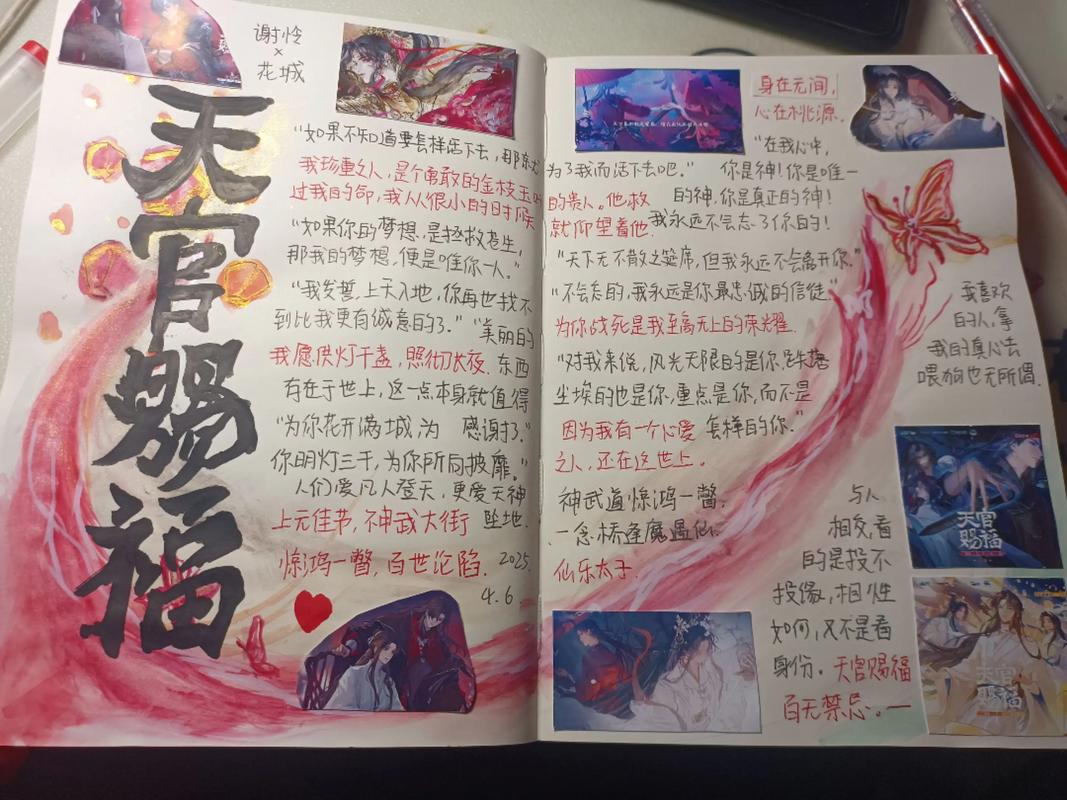 谢怜
×
花城
天官赐福
"如果不知道要怎样活下去，那
我珍重之人，是个勇敢的金枝玉
过我的命，我从很小的时候
"如果你的梦想，是拯救苍生，
那我的梦想，便是唯你一人。"
"我发誓，上天入地，你再也找不
到比我更有诚意的了。" "美丽的
我愿供灯千盏，照彻长夜. 东西
存在于世上，这一点本身就值得
"为你花开满城，为 感谢了."
你明灯三千，为你所向披靡。"
人们爱凡人登天，更爱天神
上元佳节，不神武大街 坠地.
惊鸿一瞥，百世沦陷. 2025.
4.6.
身在无间，
心在桃源.
"在我心中，
为了我而活下去吧." 你是神！你是唯一
的贵人。他救 的神，你是真正的神！
就仰望着他. 我永远不会忘了你的！
"天下无不散之筵席，但我永远不会离开你."
"不会忘的，我永远是你最忠诚的信徒"
为你战死是我至高无上的荣耀.
"对我来说，风光无限的是你，跌落
尘埃的也是你，重点是你，而不是
因为我有一个心爱 怎样的你."
之人，还在这世上。
神武道惊鸿一瞥.
一念桥逢魔遇仙.
仙乐太子.
我喜欢
的人，拿
我的真心去
喂狗也无所谓.
与人
相交，看
的是投不
投缘，相性
如何，又不是看
身份. 天官赐福
百无禁忌。一
天官
赐福
天官
赐福